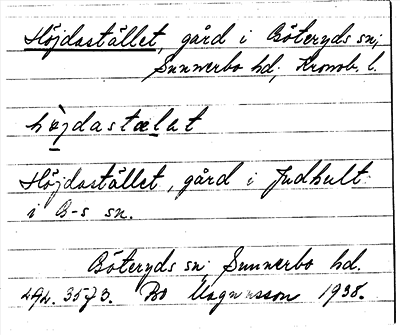 Höjdastället, gård i Böteryds sn;
Sunnerbo hd; Kronob. l.
höjdastælat
Höjdastället, gård i Judhult
i B-s sn.
Böteryds sn; Sunnerbo hd.
494. 3573. Bo Magnusson 1938.